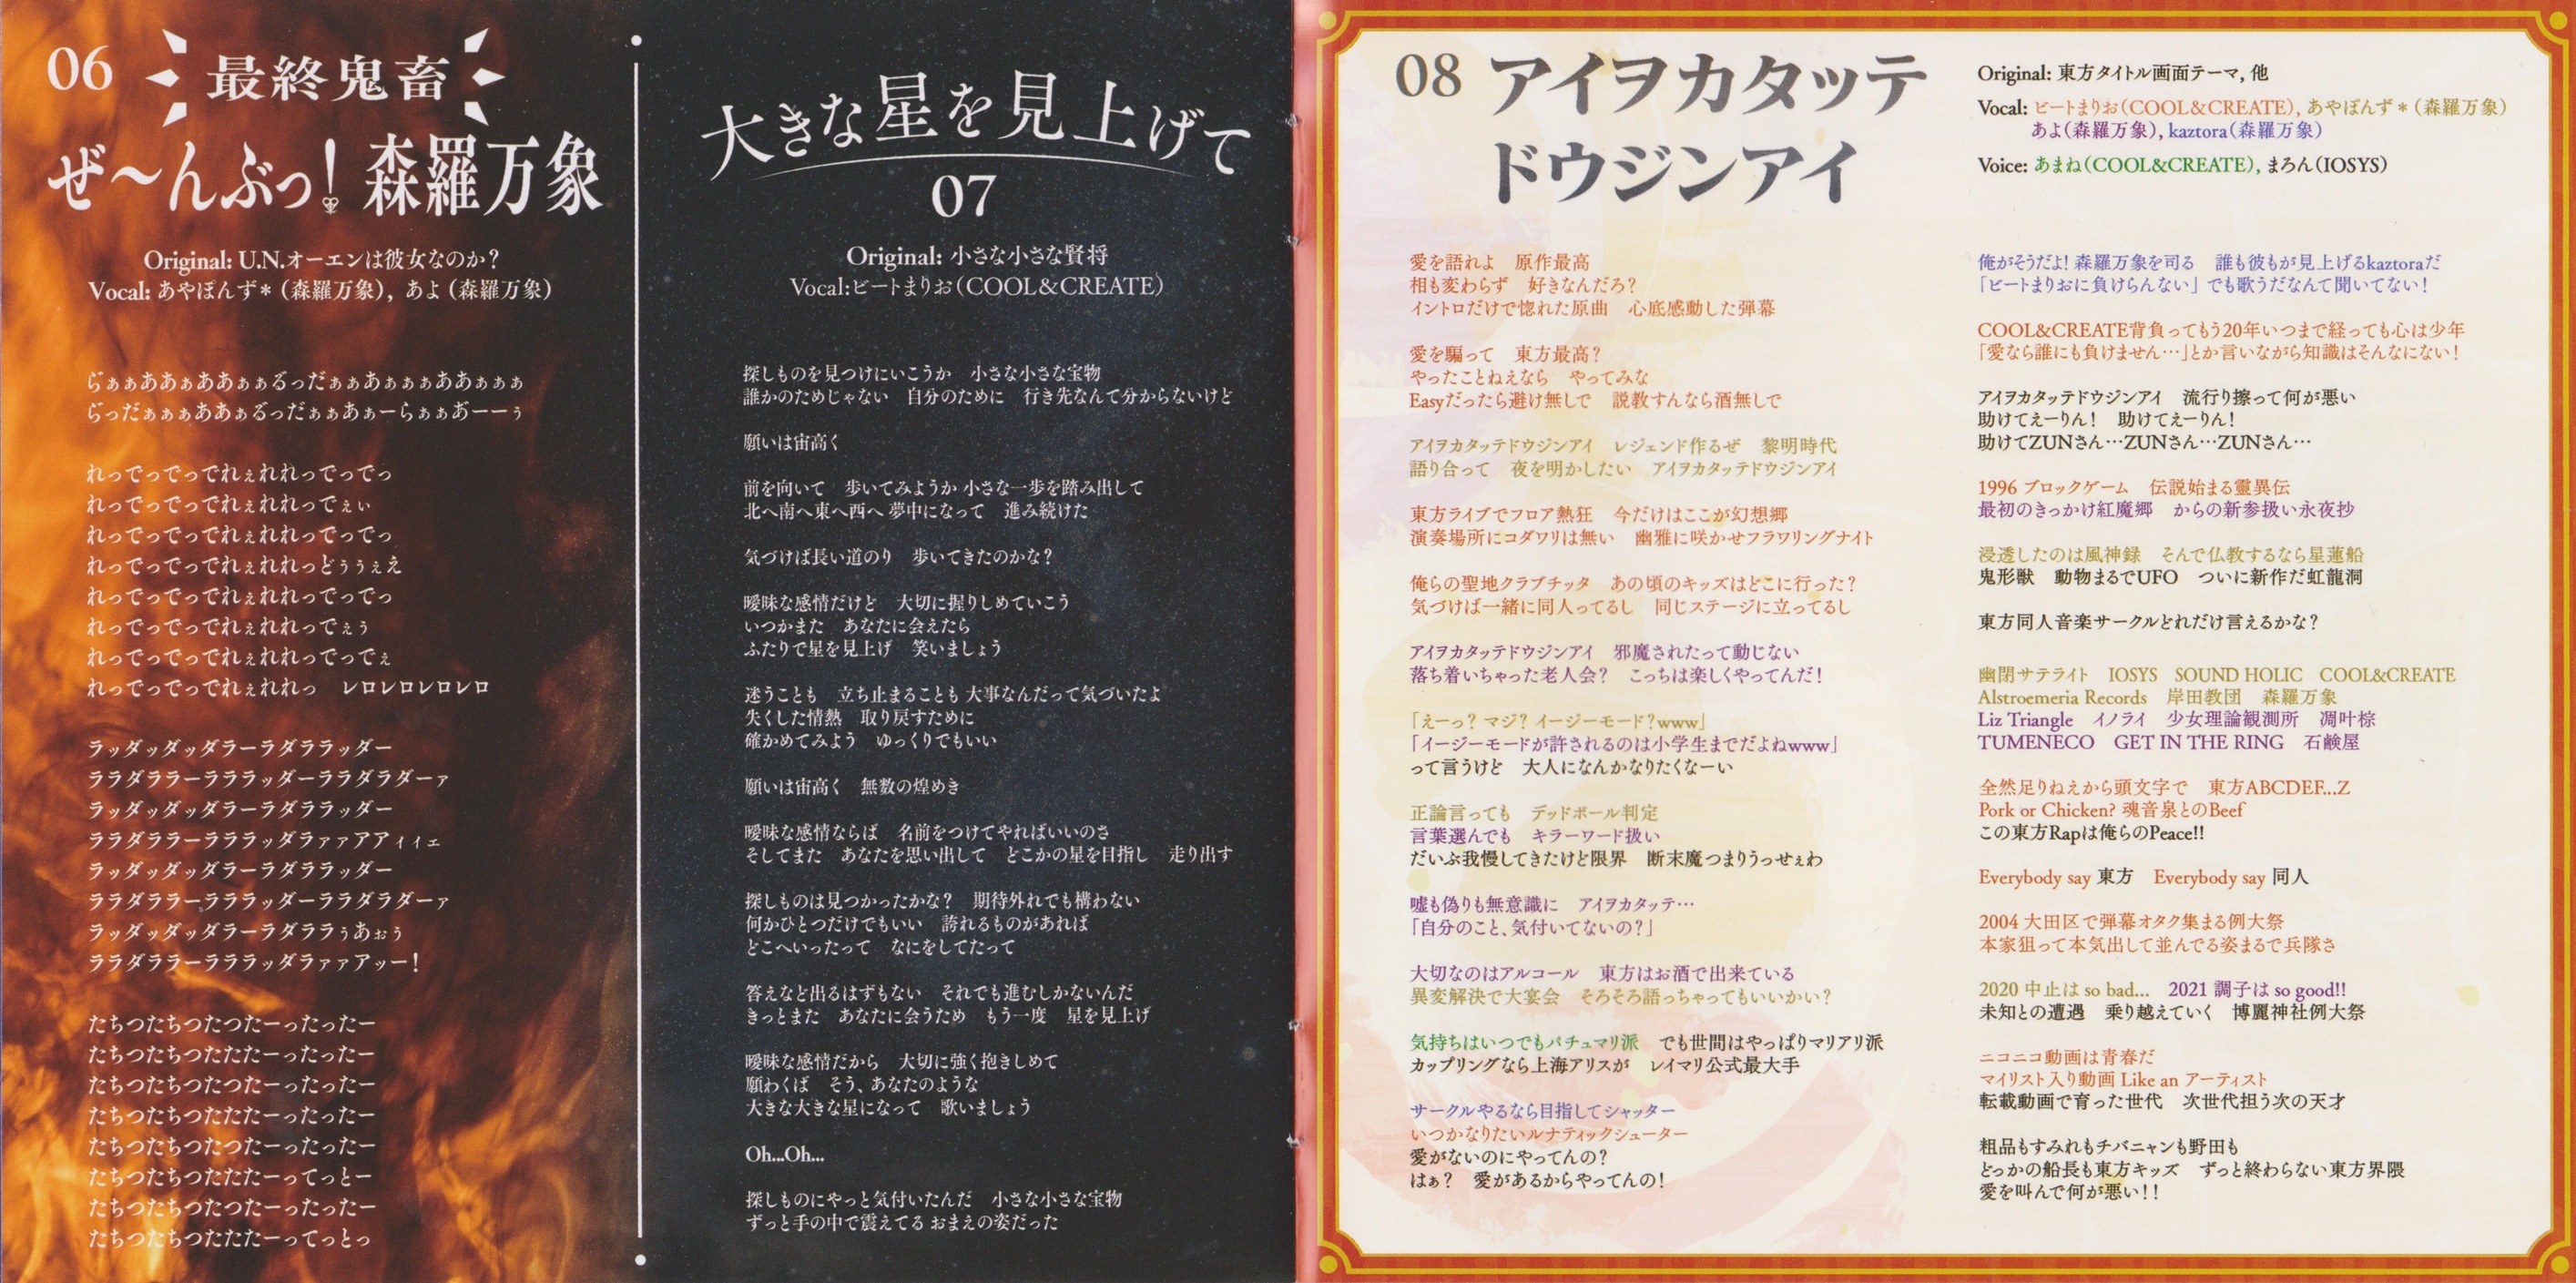 06
最終鬼畜
ぜ〜んぶっ！森羅万象
Original: U.N.オーエンは彼女なのか？
Vocal: あやぽんず＊（森羅万象），あよ（森羅万象）
れっでっでっでれぇれれっでっでっ
れっでっでっでれぇれれっでぇぃ
れっでっでっでれぇれれっでっでっ
れっでっでっでれぇれれっどぅぅぇえ
れっでっでっでれぇれれっでっでっ
れっでっでっでれぇれれっでぇぅ
れっでっでっでれぇれれっでっでぇ
れっでっでっでれぇれれっ　レロレロレロレロ
ラッダッダッダラーラダララッダー
ララダララーラララッダーララダラダーァ
ラッダッダッダラーラダララッダー
ララダララーラララッダラァァアアィィェ
ラッダッダッダラーラダララッダー
ララダララーラララッダーララダラダーァ
ラッダッダッダラーラダララぅあぉぅ
ララダララーラララッダラァァアッー！
たちつたちつたつたーったったー
たちつたちつたたたーったったー
たちつたちつたつたーったったー
たちつたちつたたたーったったー
たちつたちつたつたーったったー
たちつたちつたたたーってっとー
たちつたちつたつたーったったー
たちつたちつたたたーってっとっ
大きな星を見上げて
07
Original: 小さな小さな賢将
Vocal:ビートまりお（COOL&CREATE）
探しものを見つけにいこうか　小さな小さな宝物
誰かのためじゃない　自分のために　行き先なんて分からないけど
願いは宙高く
前を向いて　歩いてみようか 小さな一歩を踏み出して
北へ南へ東へ西へ 夢中になって　進み続けた
気づけば長い道のり　歩いてきたのかな？
曖昧な感情だけど　大切に握りしめていこう
いつかまた　あなたに会えたら
ふたりで星を見上げ　笑いましょう
迷うことも　立ち止まることも 大事なんだって気づいたよ
失くした情熱　取り戻すために
確かめてみよう　ゆっくりでもいい
願いは宙高く　無数の煌めき
曖昧な感情ならば　名前をつけてやればいいのさ
そしてまた　あなたを思い出して　どこかの星を目指し　走り出す
探しものは見つかったかな？　期待外れでも構わない
何かひとつだけでもいい　誇れるものがあれば
どこへいったって　なにをしてたって
答えなど出るはずもない　それでも進むしかないんだ
きっとまた　あなたに会うため　もう一度　星を見上げ
曖昧な感情だから　大切に強く抱きしめて
願わくば　そう、あなたのような
大きな大きな星になって　歌いましょう
Oh...Oh...
探しものにやっと気付いたんだ　小さな小さな宝物
ずっと手の中で震えてる おまえの姿だった
08 アイヲカタッテ
ドウジンアイ
Original: 東方タイトル画面テーマ, 他
Vocal: ビートまりお（COOL&CREATE）, あやぽんず＊（森羅万象）
あよ（森羅万象）, kaztora（森羅万象）
Voice: あまね（COOL&CREATE）, まろん（IOSYS）
愛を語れよ　原作最高
相も変わらず　好きなんだろ？
イントロだけで惚れた原曲　心底感動した弾幕
愛を騙って　東方最高？
やったことねえなら　やってみな
Easyだったら避け無しで　説教すんなら酒無しで
アイヲカタッテドウジンアイ　レジェンド作るぜ　黎明時代
語り合って　夜を明かしたい　アイヲカタッテドウジンアイ
東方ライブでフロア熱狂　今だけはここが幻想郷
演奏場所にコダワリは無い　幽雅に咲かせフラワリングナイト
俺らの聖地クラブチッタ　あの頃のキッズはどこに行った？
気づけば一緒に同人ってるし　同じステージに立ってるし
アイヲカタッテドウジンアイ　邪魔されたって動じない
落ち着いちゃった老人会？　こっちは楽しくやってんだ！
「えーっ？ マジ？ イージーモード？www」
「イージーモードが許されるのは小学生までだよねwww」
って言うけど　大人になんかなりたくなーい
正論言っても　デッドボール判定
言葉選んでも　キラーワード扱い
だいぶ我慢してきたけど限界　断末魔つまりうっせぇわ
嘘も偽りも無意識に　アイヲカタッテ…
「自分のこと、気付いてないの？」
大切なのはアルコール　東方はお酒で出来ている
異変解決で大宴会　そろそろ語っちゃってもいいかい？
気持ちはいつでもパチュマリ派　でも世間はやっぱりマリアリ派
カップリングなら上海アリスが　レイマリ公式最大手
サークルやるなら目指してシャッター
いつかなりたいルナティックシューター
愛がないのにやってんの？
はぁ？　愛があるからやってんの！
俺がそうだよ！ 森羅万象を司る　誰も彼もが見上げるkaztoraだ
「ビートまりおに負けらんない」でも歌うだなんて聞いてない！
COOL&CREATE背負ってもう20年いつまで経っても心は少年
「愛なら誰にも負けません…」とか言いながら知識はそんなにない！
アイヲカタッテドウジンアイ　流行り擦って何が悪い
助けてえーりん！　助けてえーりん！
助けてZUNさん…ZUNさん…ZUNさん…
1996 ブロックゲーム　伝説始まる靈異伝
最初のきっかけ紅魔郷　からの新参扱い永夜抄
浸透したのは風神録　そんで仏教するなら星蓮船
鬼形獣　動物まるでUFO　ついに新作だ虹龍洞
東方同人音楽サークルどれだけ言えるかな？
幽閉サテライト　IOSYS　SOUND HOLIC　COOL&CREATE
Alstroemeria Records　岸田教団　森羅万象
Liz Triangle　イノライ　少女理論観測所　凋叶棕
TUMENECO　GET IN THE RING　石鹸屋
全然足りねえから頭文字で　東方ABCDEF...Z
Pork or Chicken? 魂音泉とのBeef
この東方Rapは俺らのPeace!!
Everybody say 東方　Everybody say 同人
2004 大田区で弾幕オタク集まる例大祭
本家狙って本気出して並んでる姿まるで兵隊さ
2020 中止は so bad...　2021 調子は so good!!
未知との遭遇　乗り越えていく　博麗神社例大祭
ニコニコ動画は青春だ
マイリスト入り動画 Like an アーティスト
転載動画で育った世代　次世代担う次の天才
粗品もすみれもチバニャンも野田も
どっかの船長も東方キッズ　ずっと終わらない東方界隈
愛を叫んで何が悪い！！